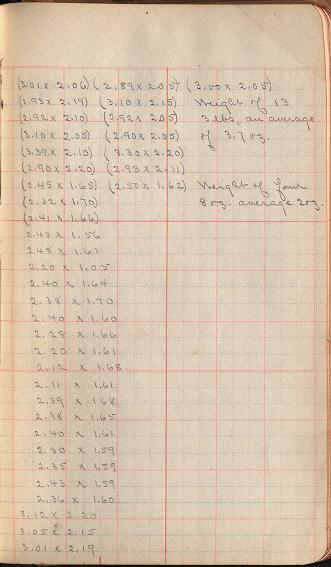 (3.01 x 2.06) (2.89 x 2.05) (3.00 x 2.05)
(2.93 x 2.19) (3.10 x 2.15) Weight of 13
(2.92 x 2.10) (2.92 x 2.05) 3 lbs, an average
(3.10 x 2.05) (2.90 x 2.05) of 3.7 oz.
(3.39 x 2.10) (3.30 x 2.20)
(2.90 x 2.20) (2.93 x 2.11)
(2.45 x 1.65) (2.50 x 1.62) Weight of four
(2.32 x 1.70) 8 oz. average 2 oz.
(2.41 x 1.66)
2.43 x 1.56
2.48 x 1.61
2.20 x 1.05
2.40 x 1.64
2.38 x 1.70
2.40 x 1.60
2.28 x 1.66
2.20 x 1.61
2.12 x 1.68
2.11 x 1.61
2.39 x 1.68
2.38 x 1.65
2.40 x 1.61
2.30 x 1.59
2.35 x 1.59
2.43 x 1.59
2.36 x 1.60
3.12 x 2.20
3.05 x 2.15
3.01 x 2.19